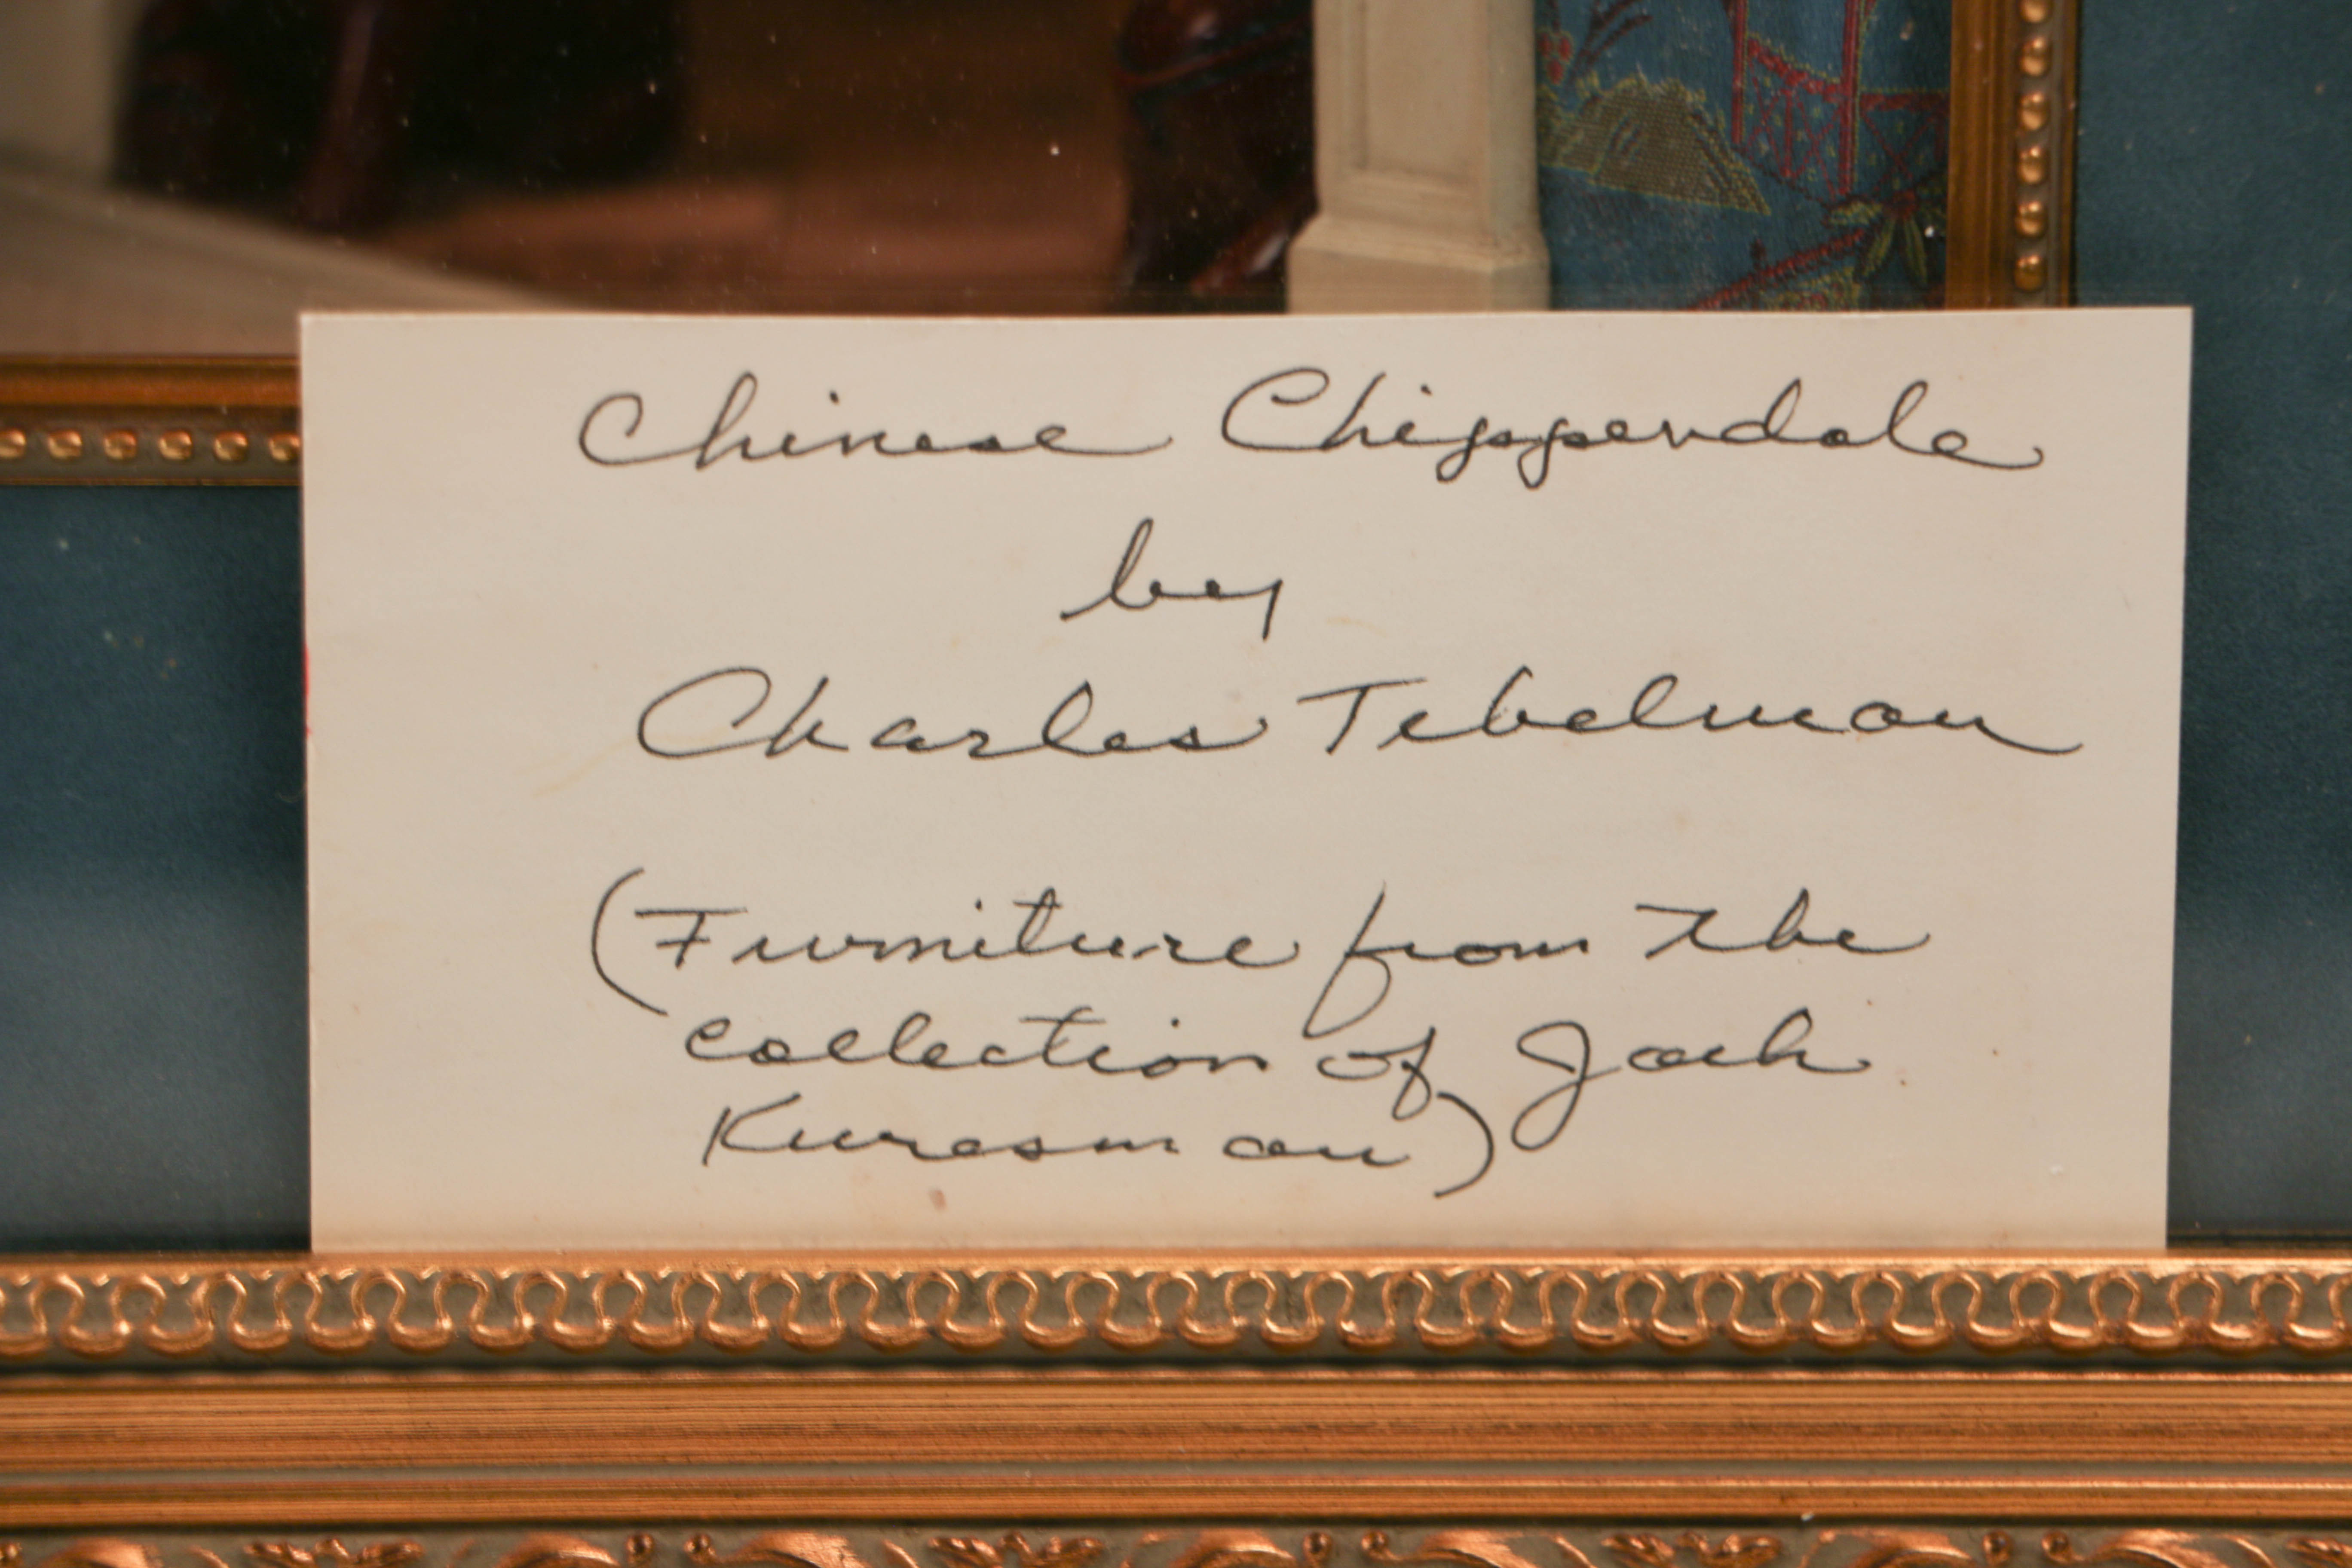 Chinese Chippendale
by
Charles Tebelman
(Furniture from the
collection of Jack
Kuresman)